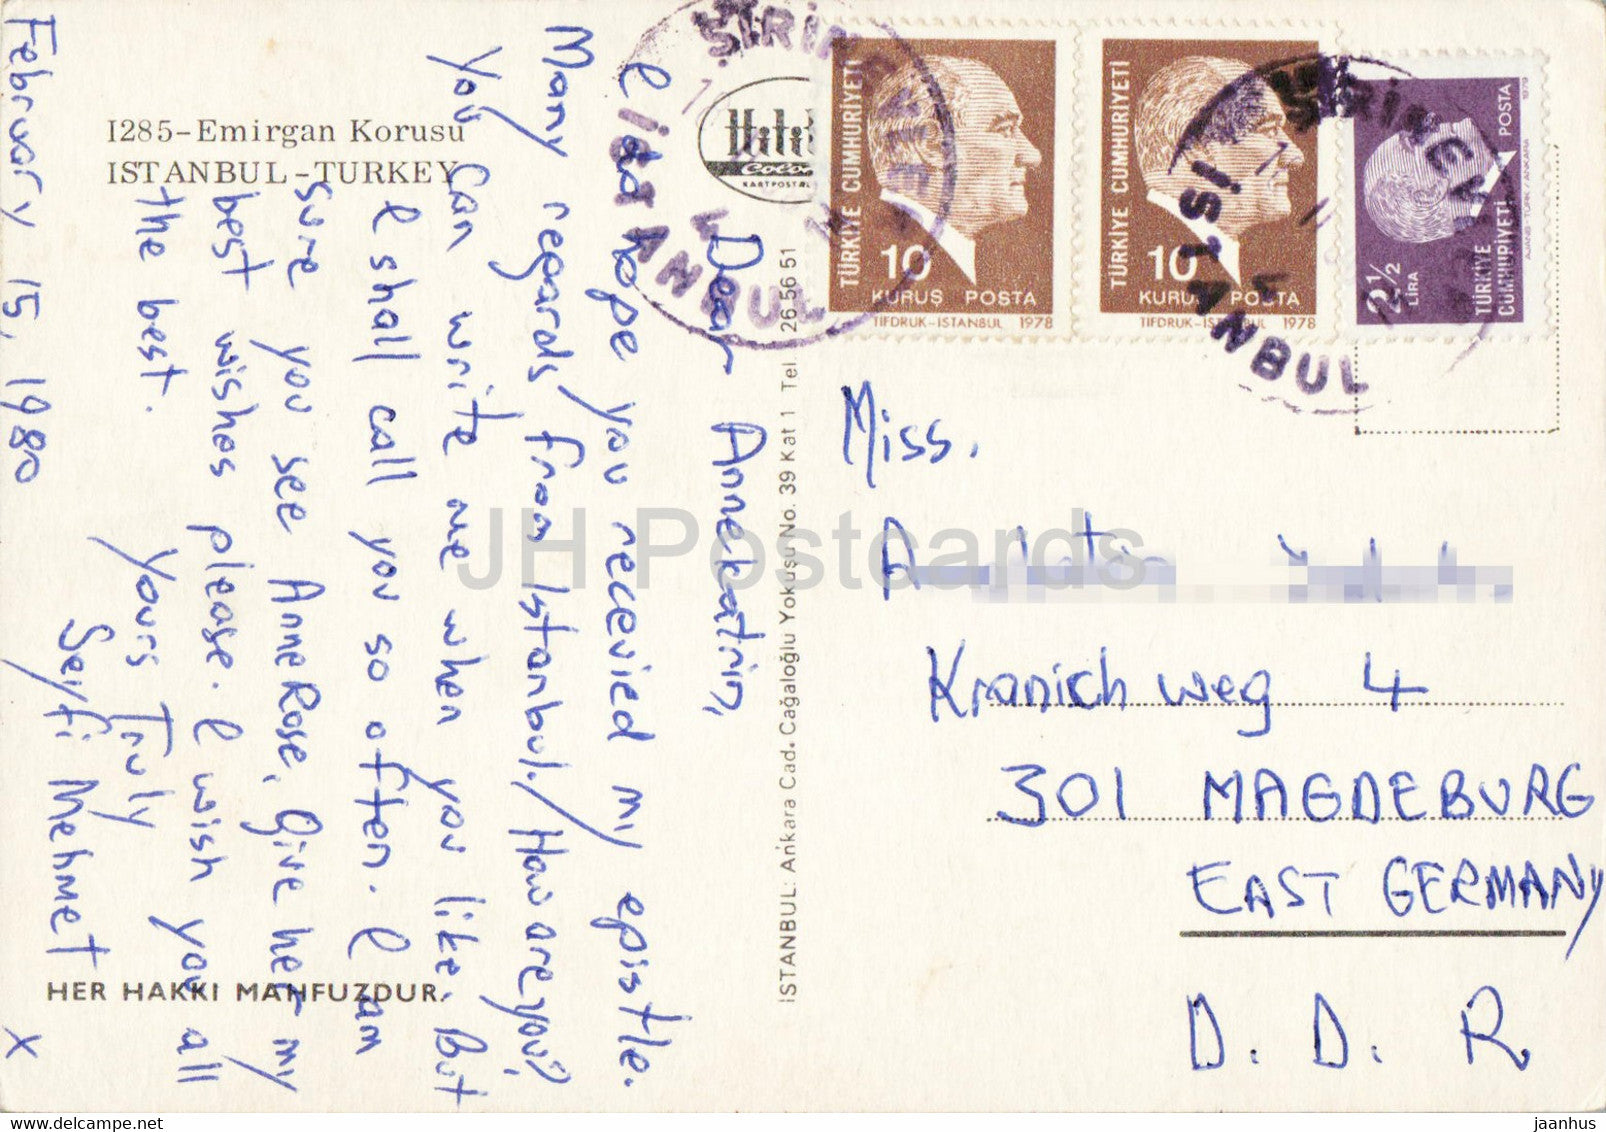 I285-Emirgan Korusu
ISTANBUL-TURKEY
Dear Annekatrin,
I do hope you received my epistle.
Many regards from Istanbul./How are you?
You can write me when you like. But
I shall call you so often. I am
sure you see AnneRose. Give her my
best wishes please. I wish you all
the best.
Yours Truly
Seyfi Mehmet
February 15, 1980 X
HER HAKKI MAHFUZDUR.
KARTPOSTAL
İSTANBUL: Ankara Cad. Cağaloğlu Yokuşu No. 39 Kat 1 Tel 26 56 51
TÜRKİYE CUMHURİYETİ
10
KURUŞ POSTA
TİFDRUK-İSTANBUL 1978
TÜRKİYE CUMHURİYETİ
10
KURUŞ POSTA
TİFDRUK-İSTANBUL 1978
2½
LİRA
TÜRKİYE
CUMHURİYETİ
POSTA
AJANS-TÜRK/ANKARA 1979
ŞİRİNEVLER
İSTANBUL
ŞİRİNEVLER
İSTANBUL
Miss.
Kranichweg 4
301 MAGDEBURG
EAST GERMANY
D. D. R
JH Postcards
delcampe.net
jaanhus